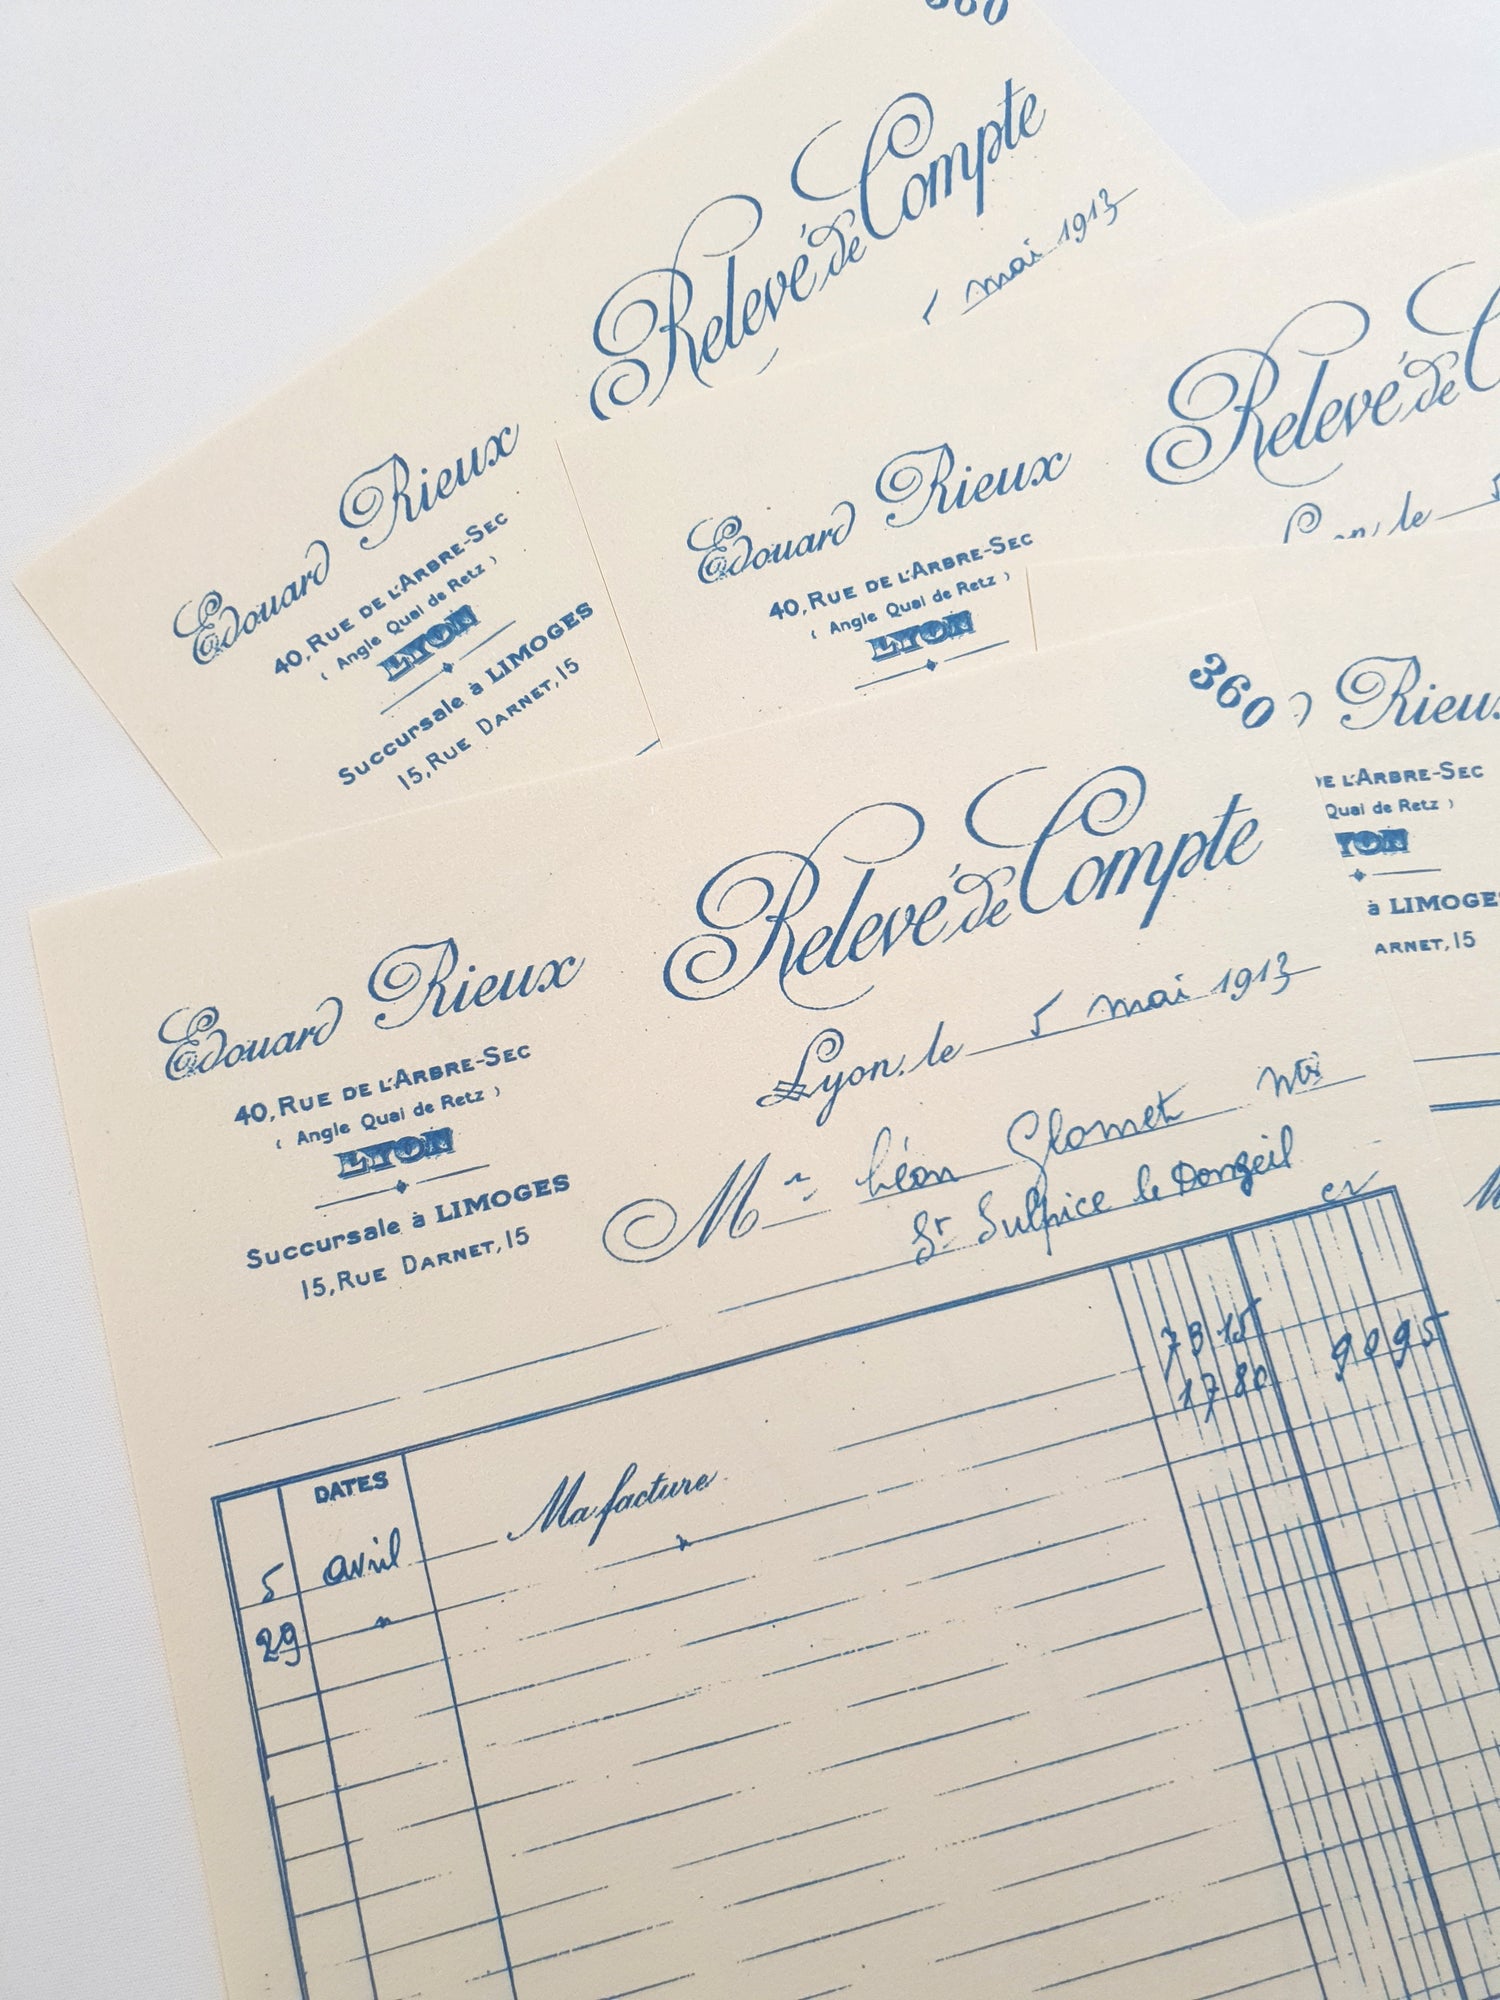 360
Relevé de Compte
mai 1913
Edouard Rieux
40, RUE DE L'ARBRE-SEC
( Angle Quai de Retz )
LYON
Succursale à LIMOGES
15, RUE DARNET, 15
Relevé de C
le 5
Edouard Rieux
40, RUE DE L'ARBRE-SEC
( Angle Quai de Retz )
LYON
Rieu
DE L'ARBRE-SEC
Quai de Retz )
YON
à LIMOGES
ARNET, 15
360
Relevé de Compte
Edouard Rieux
40, RUE DE L'ARBRE-SEC
( Angle Quai de Retz )
LYON
Succursale à LIMOGES
15, RUE DARNET, 15
Lyon, le 5 mai 1913
Mr Léon Glomet
St Sulpice le Donzeil
DATES
5 avril Ma facture 73 15
29 " " 17 80 90 95